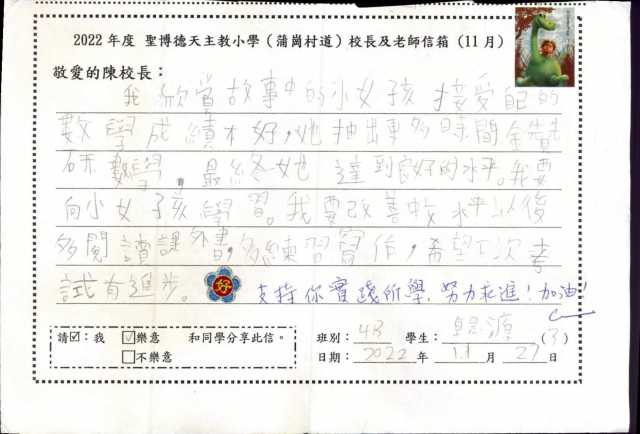 2022 年度 聖博德天主教小學（蒲崗村道）校長及老師信箱（11月）
敬愛的陳校長：
我欣當故事中的小女孩接受自己的
數學成績不好,她抽出車多時間金先先
研數學。最終她達到良好的水平。我要
向小女孩學習。我要改善收水平以後
多閱讀課外書,多練習寫作,希望下次考
試有進步。 好 支持你實踐所學,努力求進!加油!
請☑：我 ☑樂意 和同學分享此信。
□不樂意
班別： 4B 學生： 源 (3)
日期： 2022 年 11 月 27 日